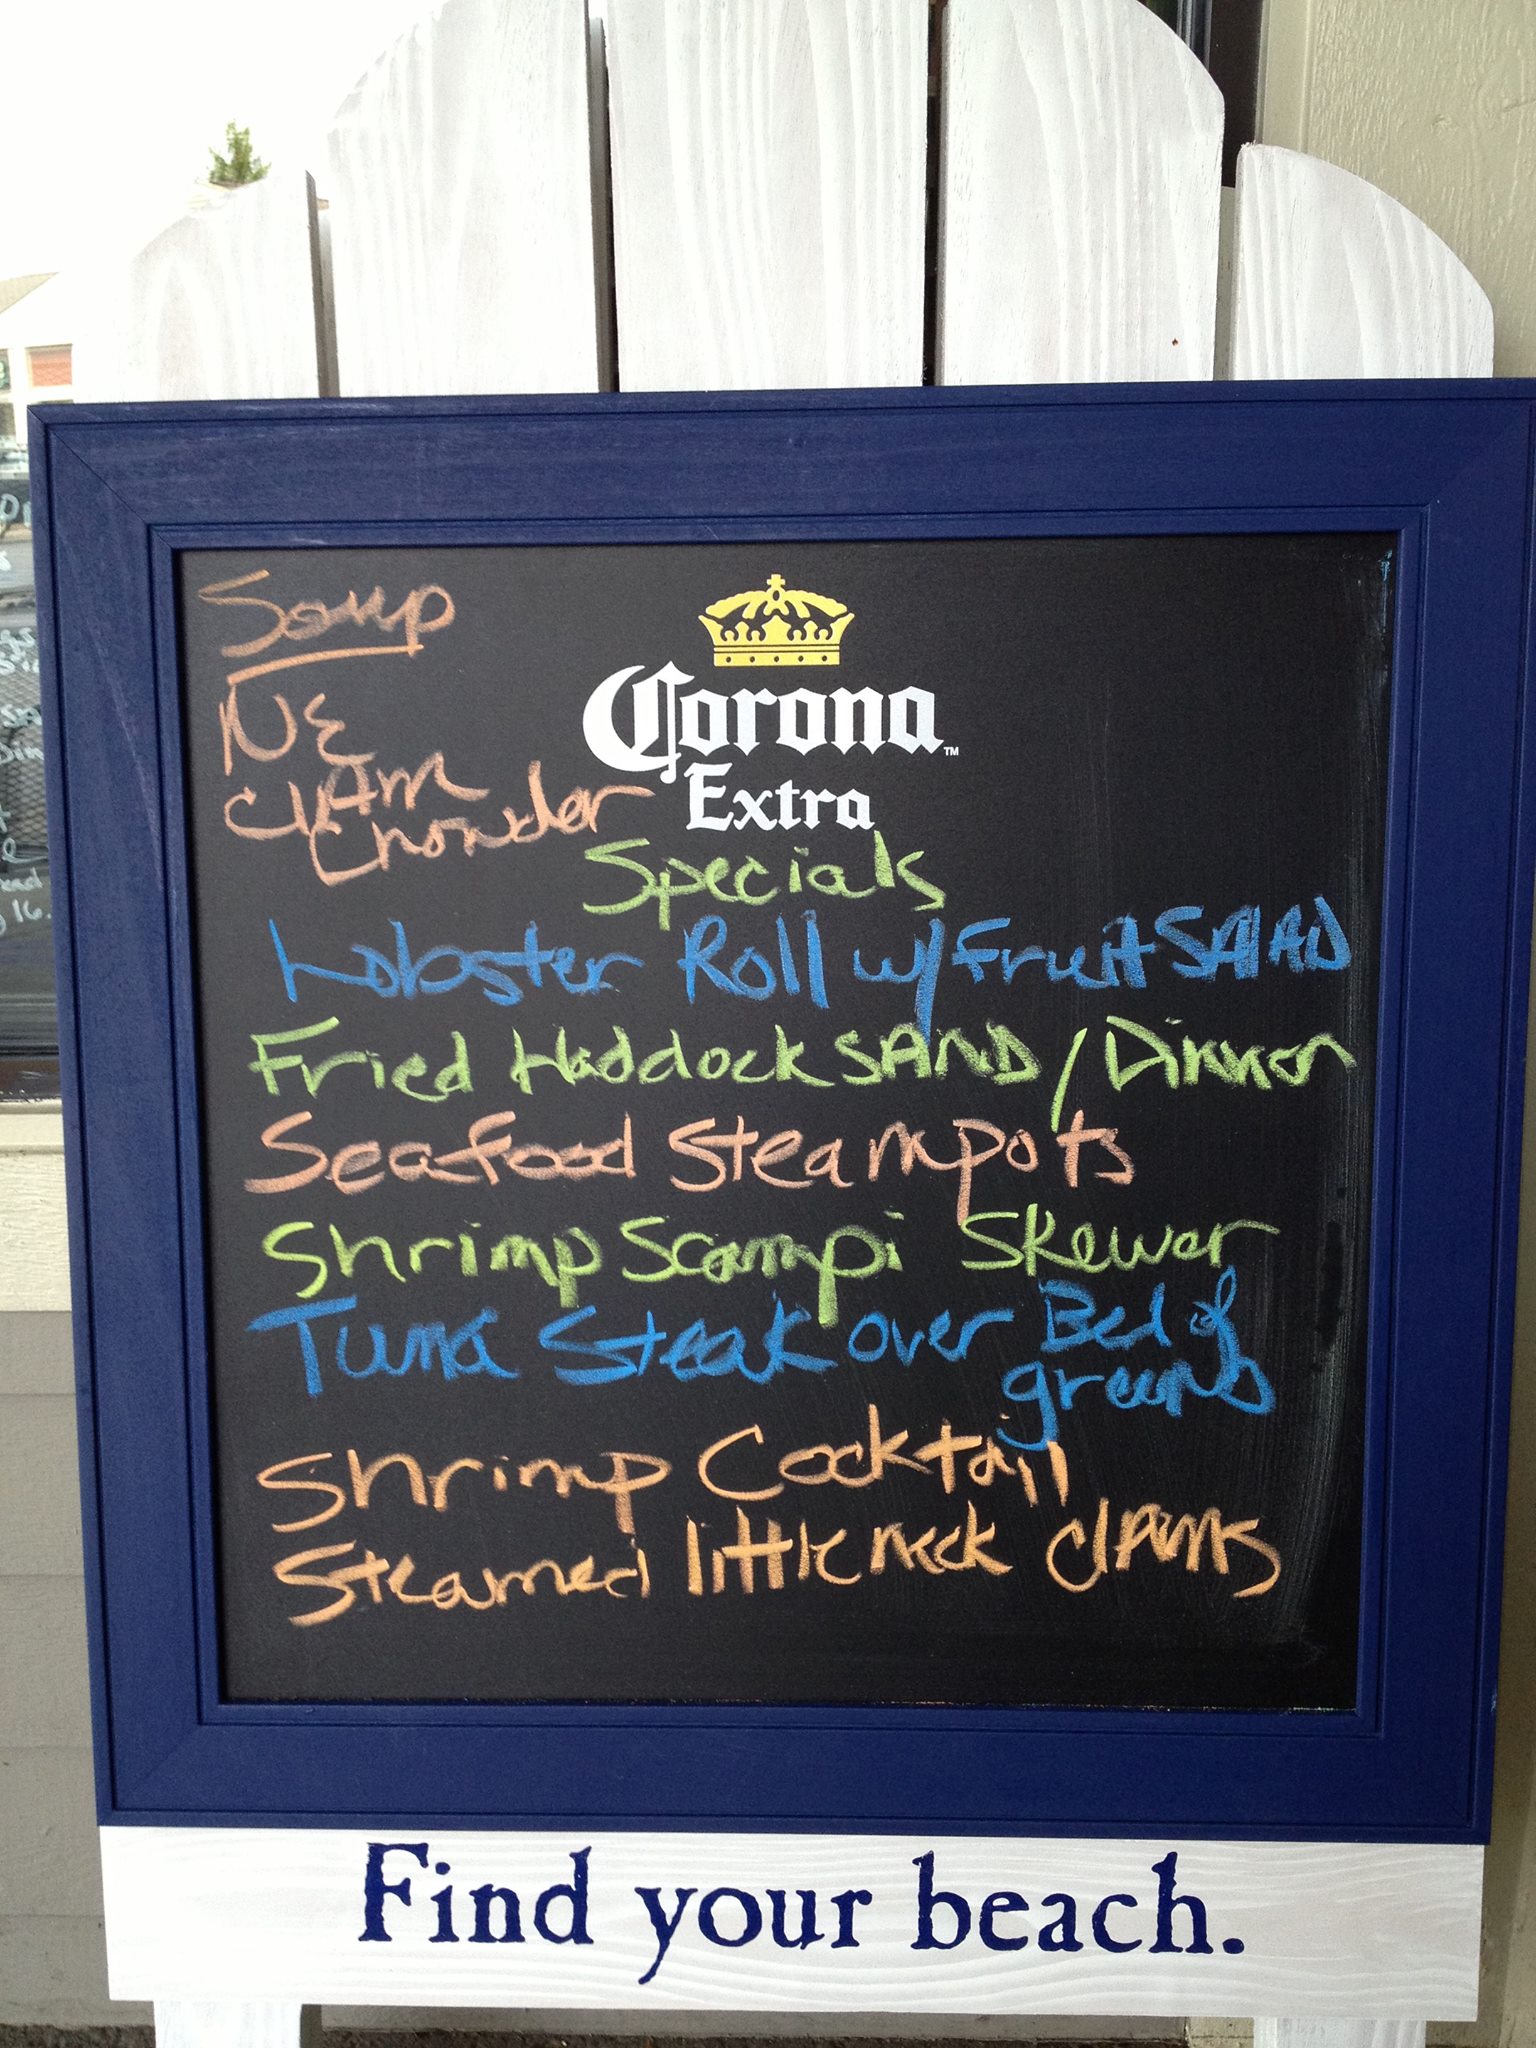 Soup
NE
Clam
Chowder
Corona
Extra
Specials
Lobster Roll w/ Fruit SALAD
Fried Haddock SAND / Dinner
Seafood Steampots
Shrimp Scampi Skewer
Tuna Steak over Bed of
greens
Shrimp Cocktail
Steamed little neck clams
Find your beach.